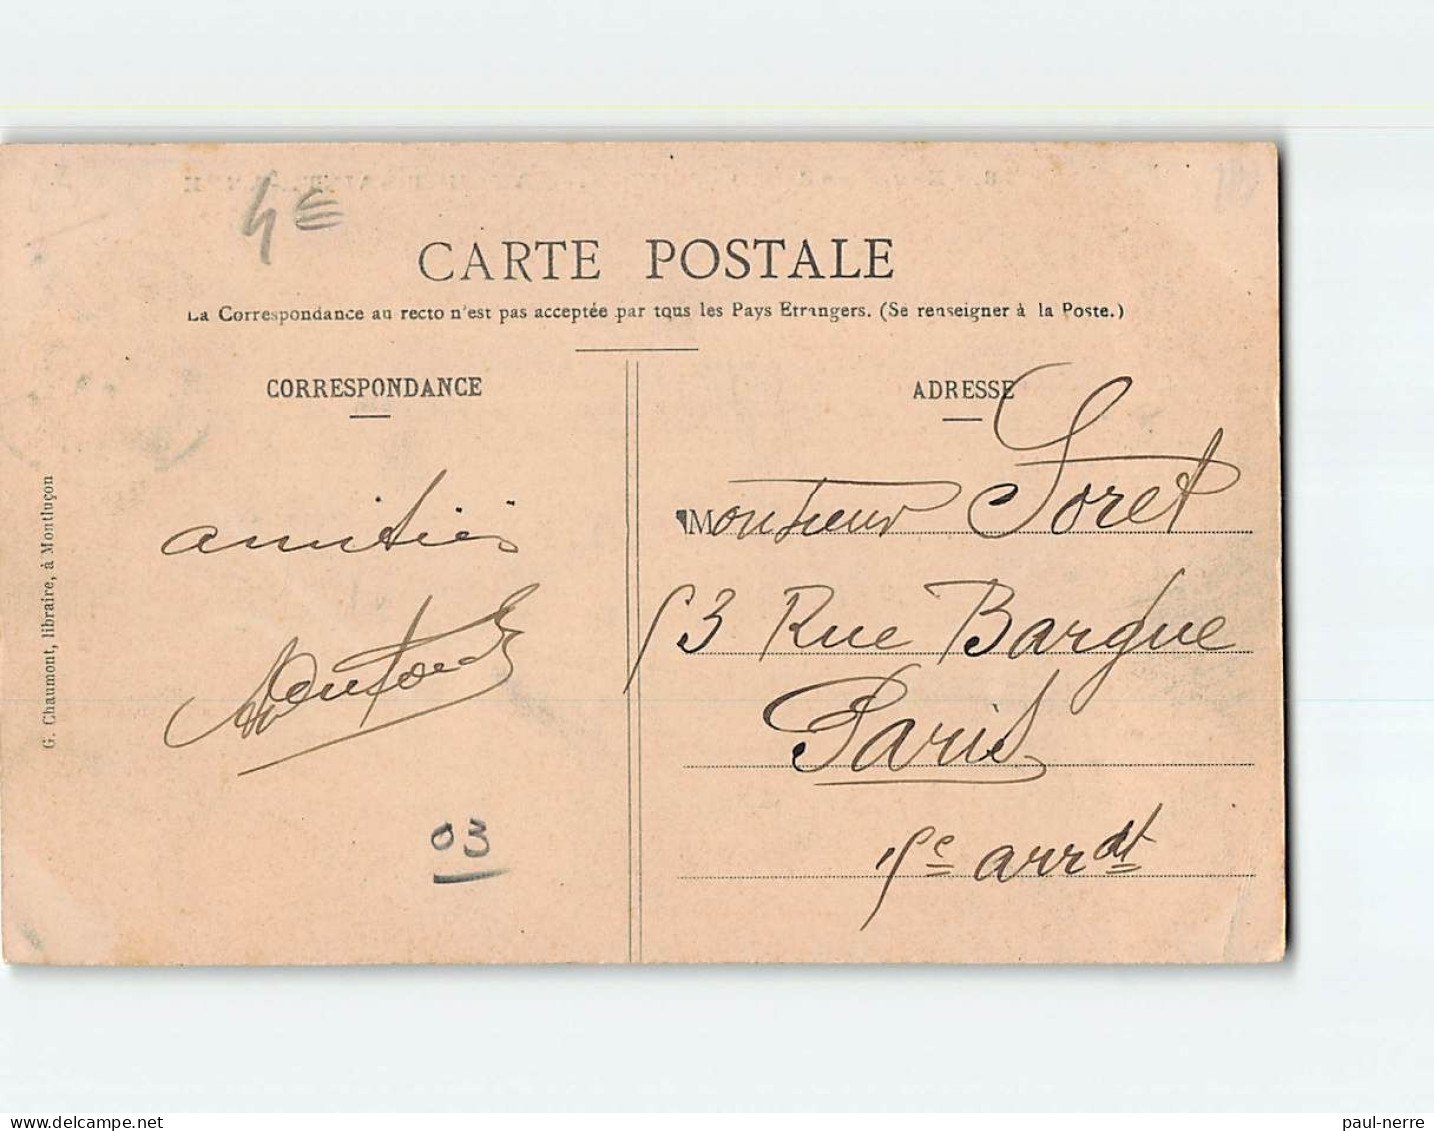 4€
CARTE POSTALE
La Correspondance au recto n'est pas acceptée par tous les Pays Etrangers. (Se renseigner à la Poste.)
CORRESPONDANCE
amitiés
03
G. Chaumont, libraire, à Montluçon
ADRESSE
Monsieur Soret
53 Rue Bargue
Paris
15e arrdt
paul-nerre